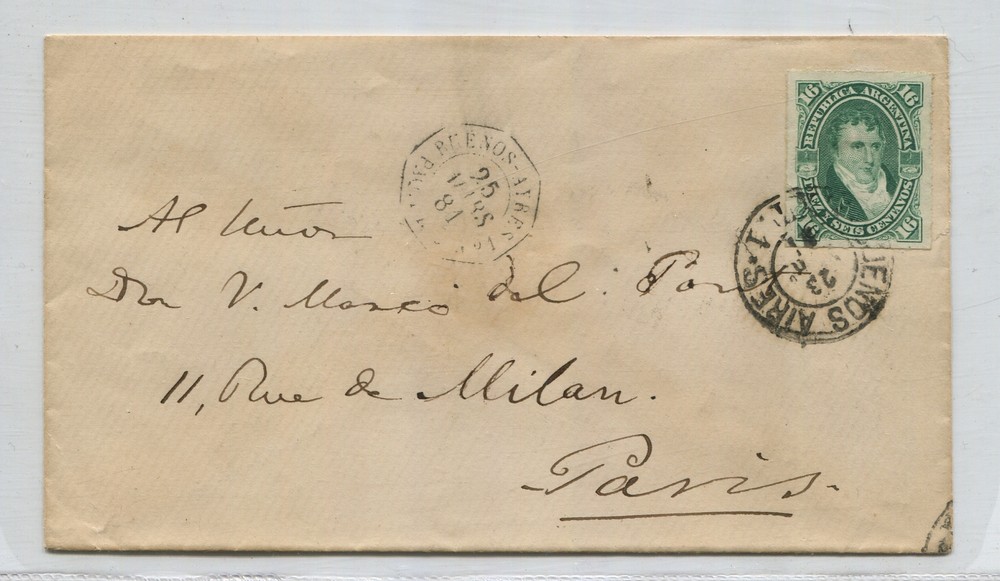 16 REPUBLICA ARGENTINA 16
DIEZ Y SEIS CENTAVOS
16 16
BUENOS-AYRES
25
MARS
81
BUENOS AIRES
23
Al Señor
Don V. Marcó del Pont
11, Rue de Milan.
Paris.